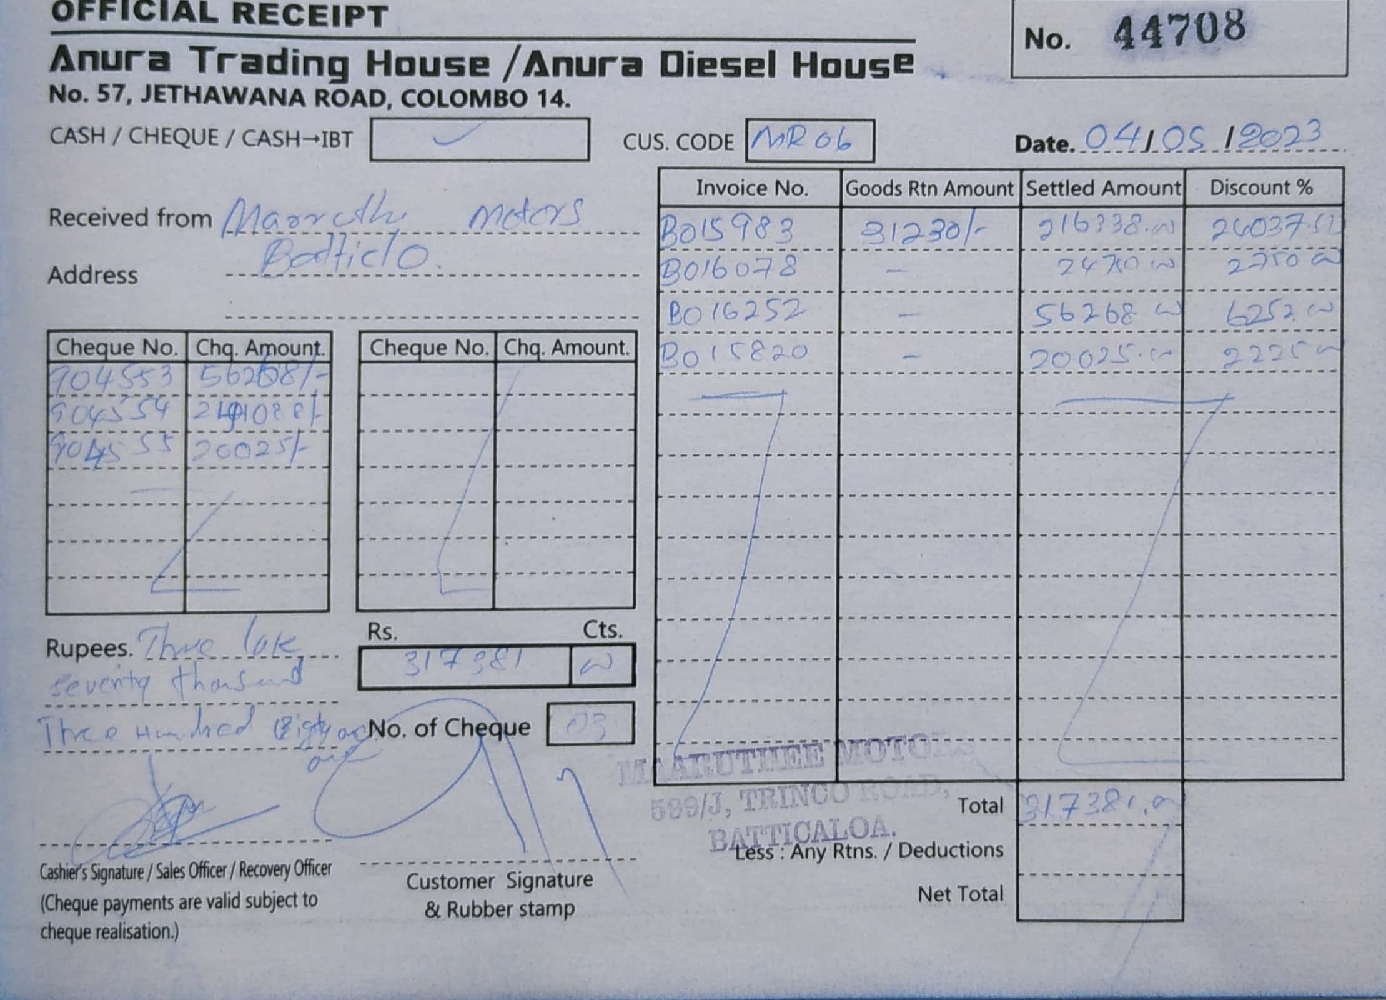 OFFICIAL RECEIPT
No. 44708
Anura Trading House /Anura Diesel House
No. 57, JETHAWANA ROAD, COLOMBO 14.
CASH / CHEQUE / CASH→IBT ✓ CUS. CODE MR06 Date. 04/05/2023
Received from Motors
Address
Invoice No. Goods Rtn Amount Settled Amount Discount %
B015983 31230/- 216338.00
B016078 -
B016252 - 56268.00 6252.00
B015820 - 20025.00 2225.00
Cheque No. Chq. Amount. Cheque No. Chq. Amount.
904553 56268/-
904554
904555 20025/-
Rupees. Three
seventy thousand
Three Hundred
Rs. Cts.
317381 00
No. of Cheque 03
MAARUTHEE MOTORS
599/J, TRINCO ROAD,
BATTICALOA.
Total 317381.00
Less : Any Rtns. / Deductions
Net Total
Cashier's Signature / Sales Officer / Recovery Officer
(Cheque payments are valid subject to
cheque realisation.)
Customer Signature
& Rubber stamp